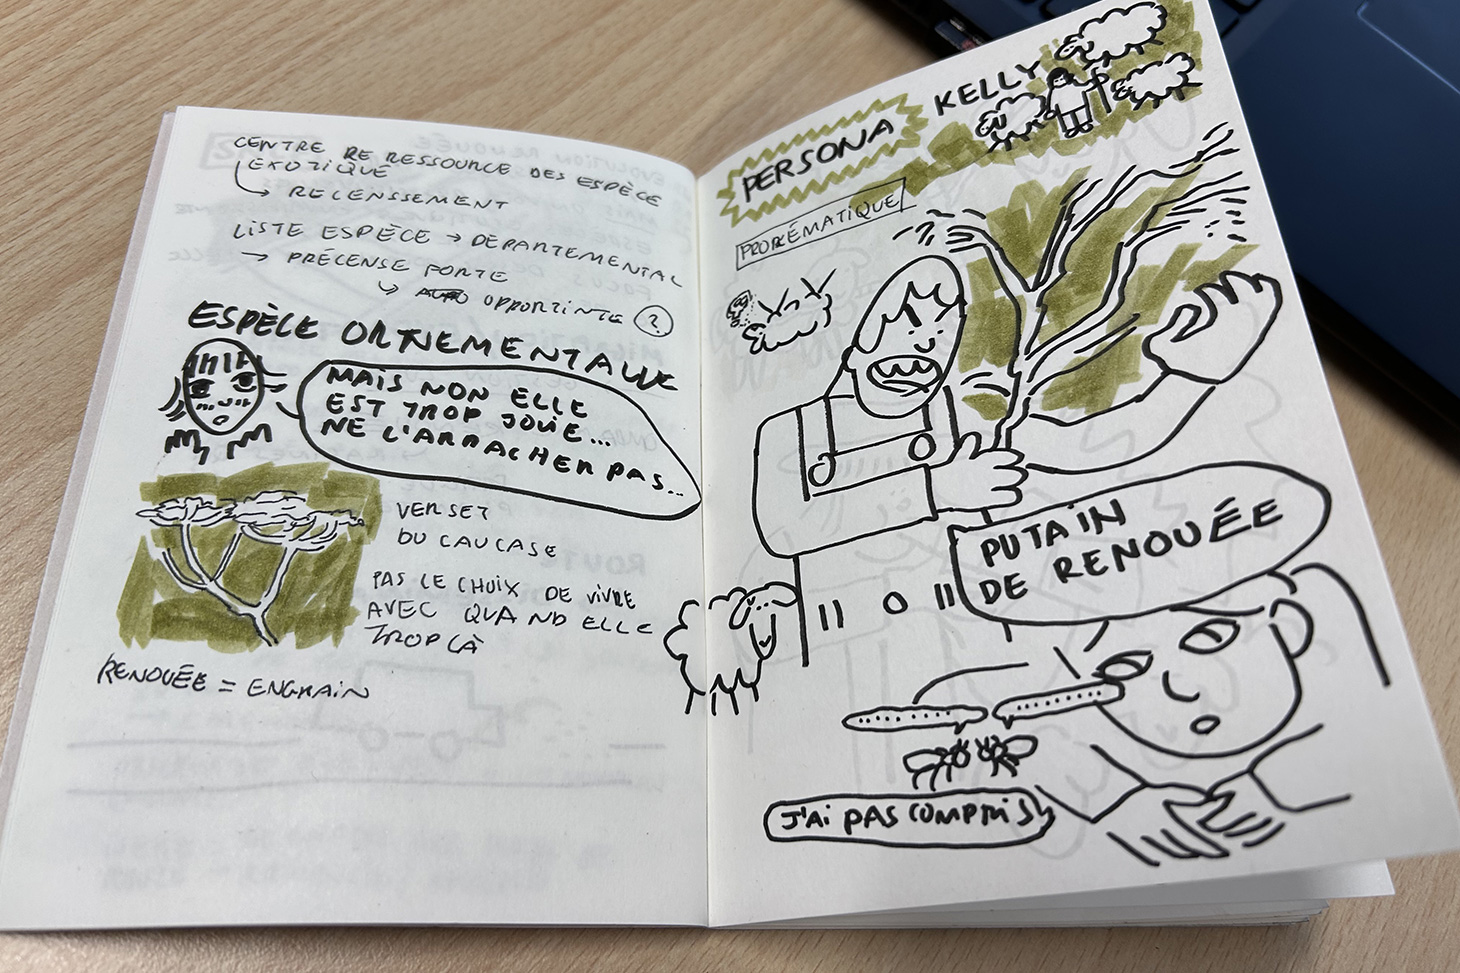 CENTRE RE RESSOURCE DES ESPÈCE
EXOTIQUE
→ RECENSSEMENT
LISTE ESPÈCE → DÉPARTEMENTAL
→ PRÉCENSE FORTE
OPPORTINTE ?
ESPÈCE ORNEMENTALE
MAIS NON ELLE
EST TROP JOLIE...
NE L'ARRACHER PAS...
VERSET
DU CAUCASE
PAS LE CHOIX DE VIVRE
AVEC QUAND ELLE
TROP LÀ
RENOUÉE = ENGRAIN
PERSONA KELLY
PROBLÉMATIQUE
PUTAIN
DE RENOUÉE
J'AI PAS COMPRIS